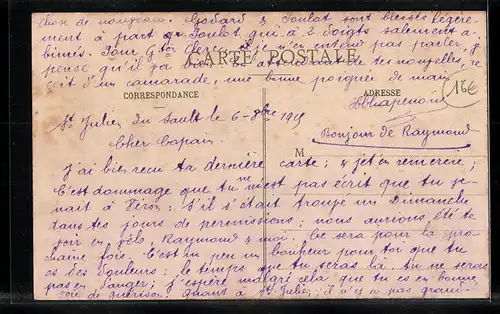 chose de nouveau. Godard & Toulot sont blessés légère-
ment à part que Toulot qui a 2 doigts salement a-
bimés. Pour je n'en entend pas parler, je
pense qu'il
En attendant de tes nouvelles, re
çoit d'un camarade, une bonne poignée de main
CARTE POSTALE
CORRESPONDANCE
ADRESSE
16€
St Julien du Sault le 6-8bre 1915
Bonjour de Raymond
Cher Copain,
M
J'ai bien reçu ta dernière carte; & je t'en remercie;
C'est dommage que tu ne m'est pas écrit que tu ve-
nait à Véron; s'il s'était trouvé un Dimanche
dans tes jours de permissions; nous aurions été te
voir en vélo, Raymond & moi. Ce sera pour la pro-
chaine fois. C'est un peu un bonheur pour toi que tu
es tes douleurs; le temps que tu seras là, tu ne seras
pas en danger; j'espère malgré cela que tu es en bonne
voie de guérison. Quant à St Julien, il n'y a pas grand-